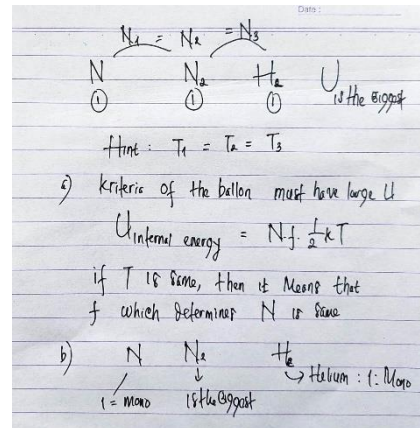 Date :
N₁ = N₂ = N₃
N N₂ H₂ U is the Biggest
① ① ①
Hint : T₁ = T₂ = T₃
a) kriteria of the ballon must have large U
U internal energy = N.f. 1/2 kT
if T is same, then it Means that
f which determines N is same
b) N N₂ He
1 = mono is the Biggest → Helium : 1 : Mono